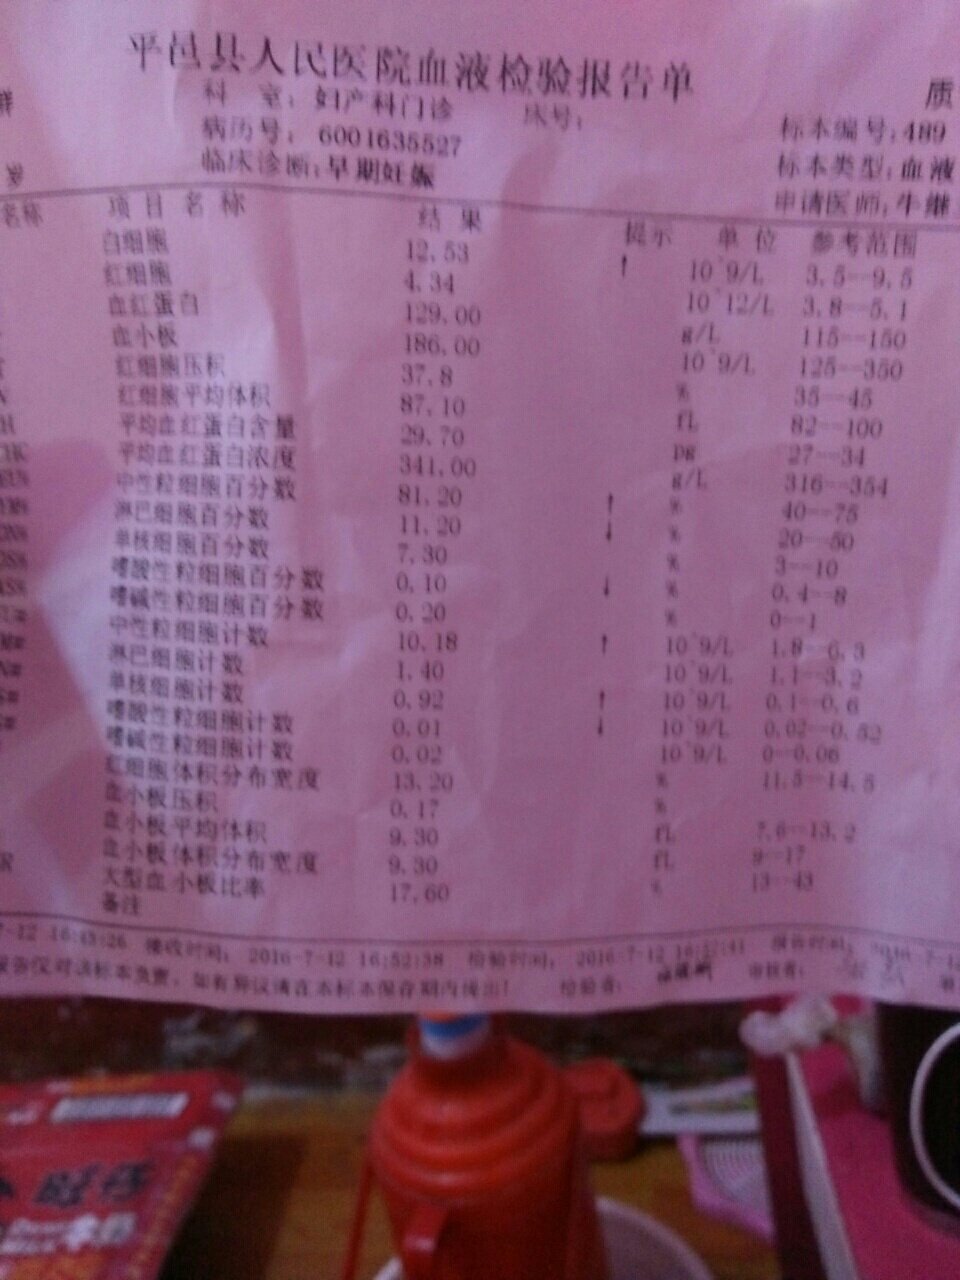 平邑县人民医院血液检验报告单
科 室: 妇产科门诊 床号:
病历号: 6001635527 标本编号:489
临床诊断:早期妊娠 标本类型:血液
申请医师:牛继
名称 项目名称 结果 提示 单位 参考范围
白细胞 12.53 ↑ 10^9/L 3.5--9.5
红细胞 4.34 10^12/L 3.8--5.1
血红蛋白 129.00 g/L 115--150
血小板 186.00 10^9/L 125--350
红细胞压积 37.8 % 35--45
红细胞平均体积 87.10 fL 82--100
平均血红蛋白含量 29.70 pg 27--34
平均血红蛋白浓度 341.00 g/L 316--354
中性粒细胞百分数 81.20 ↑ % 40--75
淋巴细胞百分数 11.20 ↓ % 20--50
单核细胞百分数 7.30 % 3--10
嗜酸性粒细胞百分数 0.10 ↓ % 0.4--8
嗜碱性粒细胞百分数 0.20 % 0--1
中性粒细胞计数 10.18 ↑ 10^9/L 1.8--6.3
淋巴细胞计数 1.40 10^9/L 1.1--3.2
单核细胞计数 0.92 ↑ 10^9/L 0.1--0.6
嗜酸性粒细胞计数 0.01 ↓ 10^9/L 0.02--0.52
嗜碱性粒细胞计数 0.02 10^9/L 0--0.06
红细胞体积分布宽度 13.20 % 11.5--14.5
血小板压积 0.17 %
血小板平均体积 9.30 fL 7.6--13.2
血小板体积分布宽度 9.30 fL 9--17
大型血小板比率 17.60 % 13--43
备注
7-12 16:43:26 接收时间: 2016-7-12 16:52:38 检验时间: 2016-7-12 16:57:41 报告时间: 2016-7-12
报告仅对该标本负责,如有异议请在本标本保存期内提出! 检验者: 审核者: